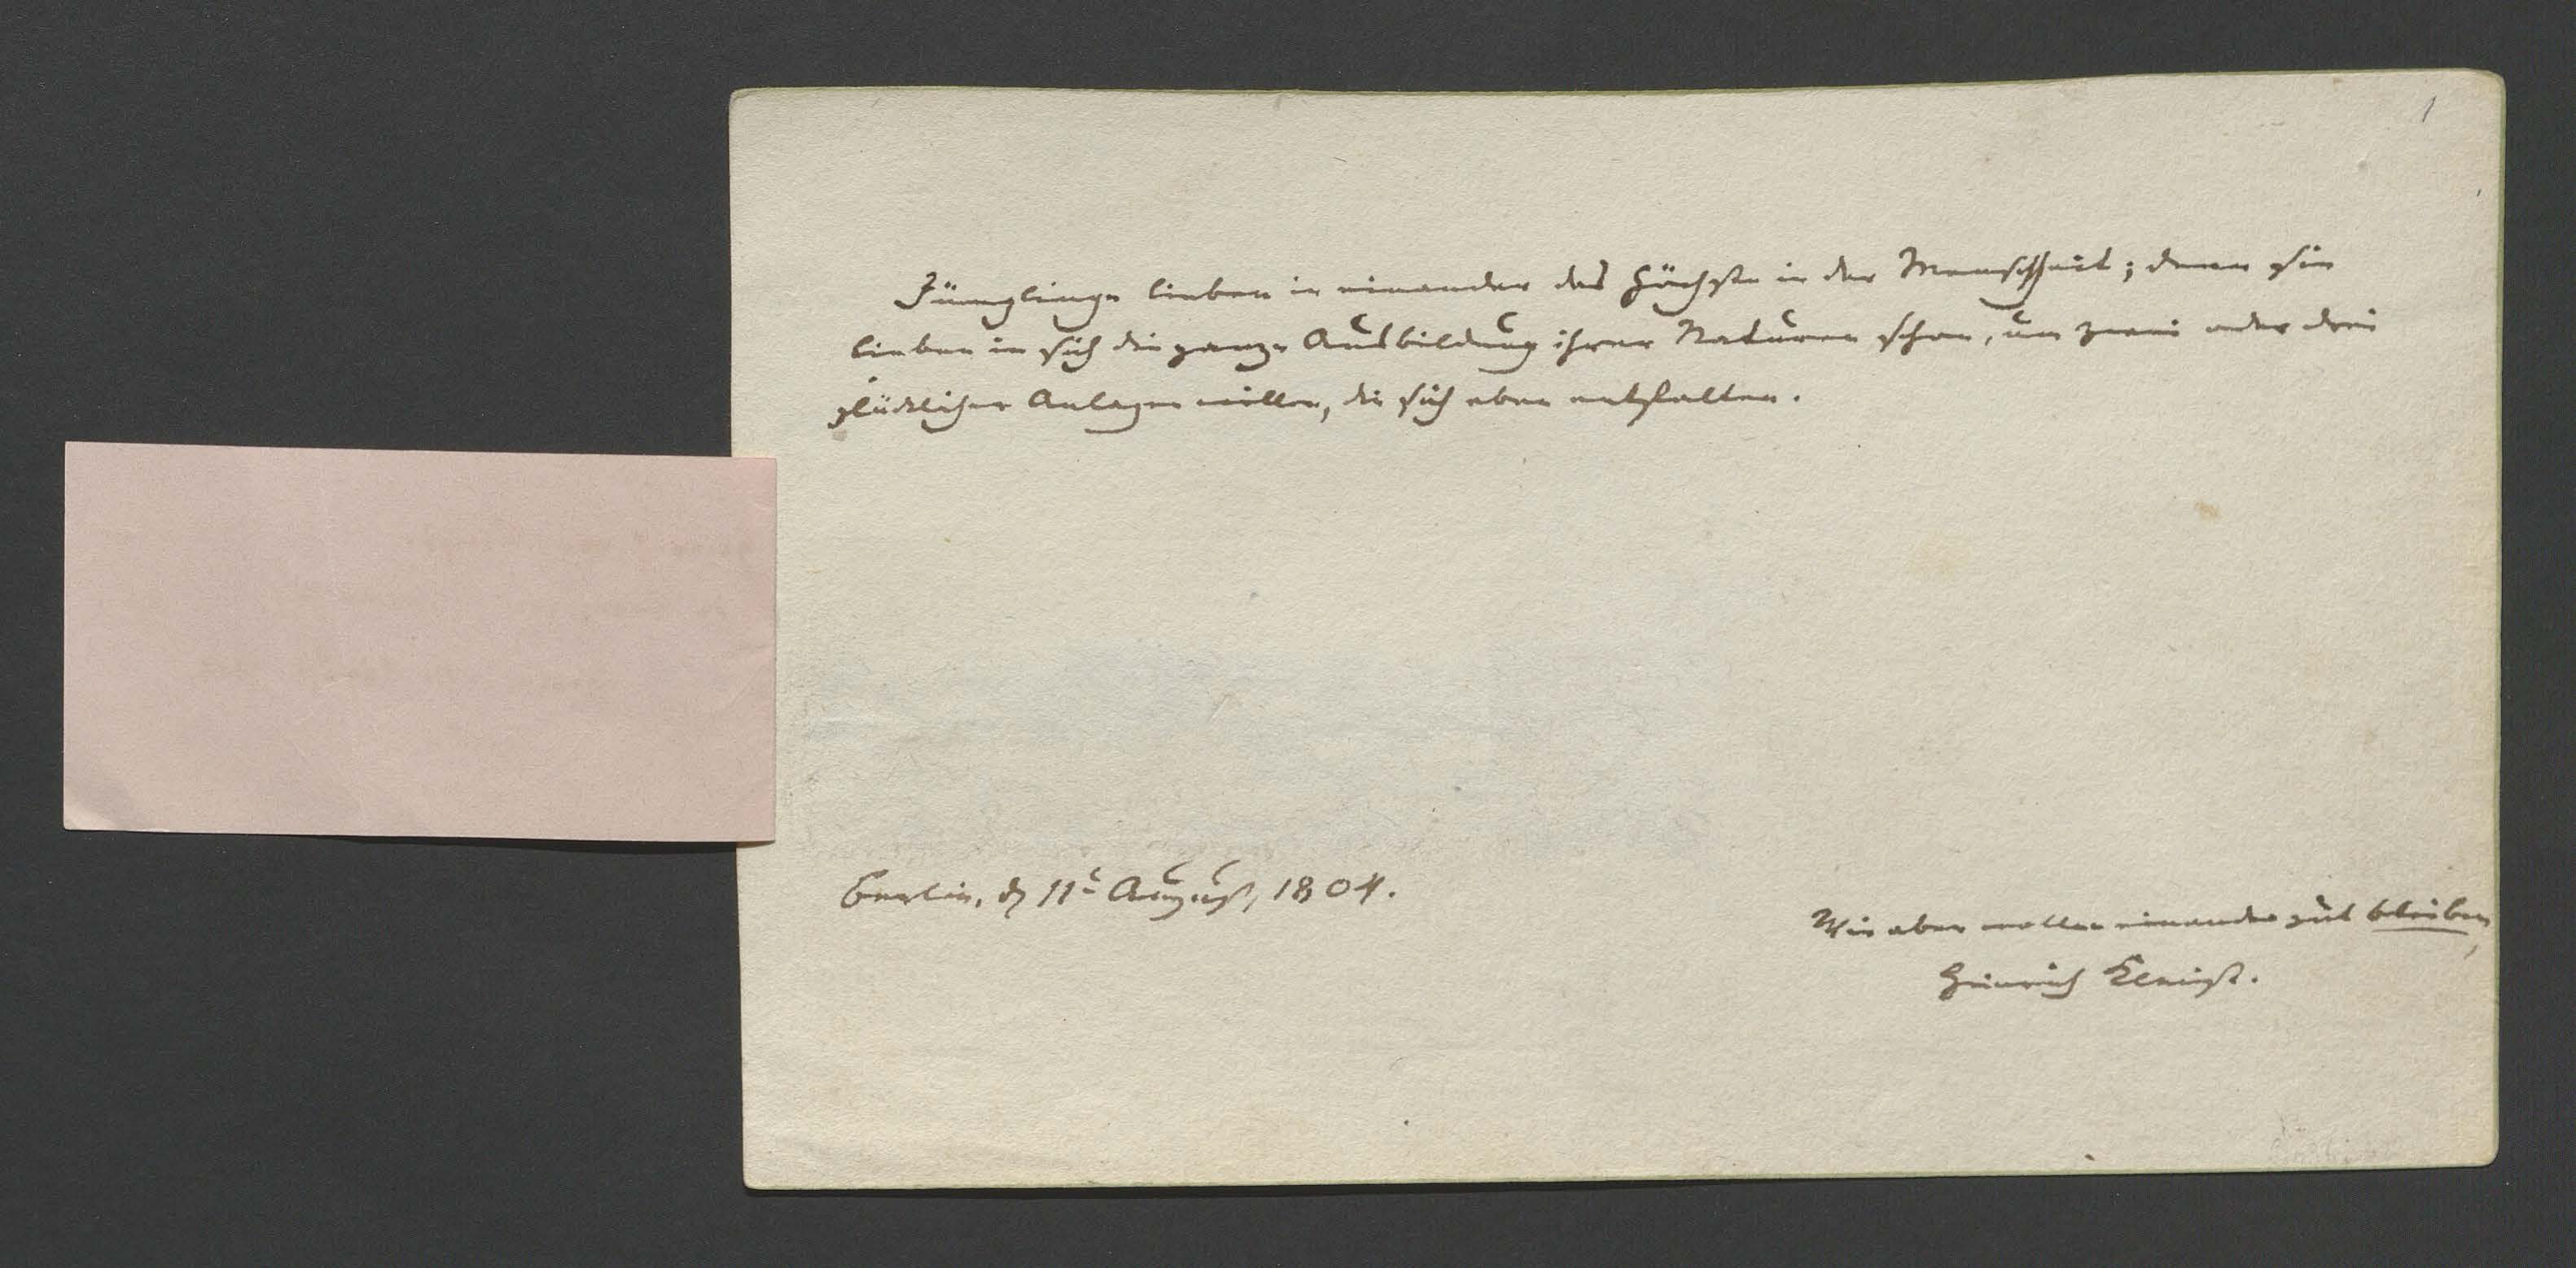 1
Jünglinge lieben in einander das Höchste in der Menschheit; denn sie
lieben in sich die ganze Ausbildung ihrer Naturen schon, um zwei oder drei
glücklicher Anlagen willen, die sich eben entfalten.
Berlin, d 11t August, 1804.
Wir aber wollen einander gut bleiben,
Heinrich Kleist.